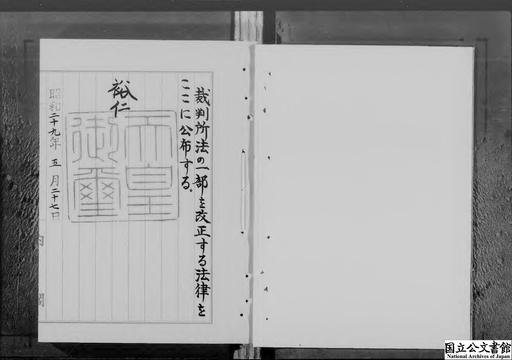 裁判所法の一部を改正する法律を
ここに公布する。
裕仁
天皇
御璽
昭和二十九年五月二十七日
内閣
国立公文書館
National Archives of Japan